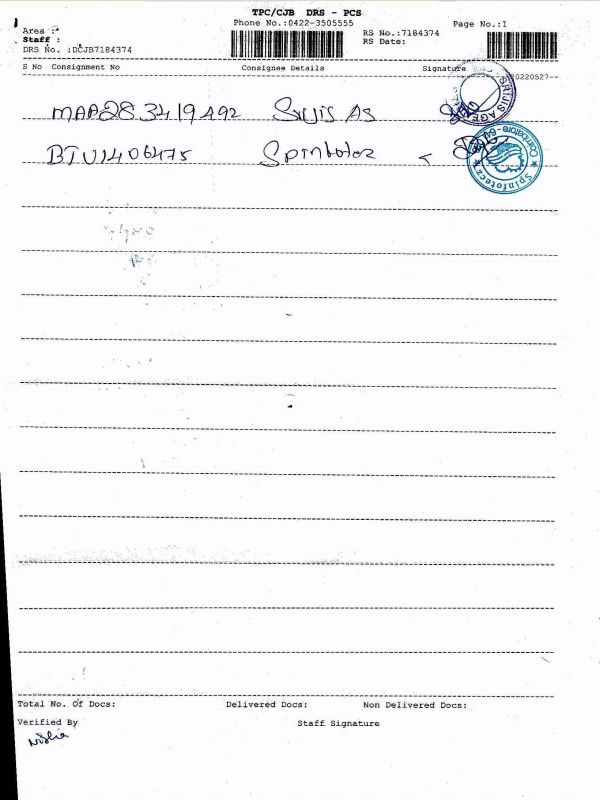 TPC/CJB DRS - PCS
Phone No.:0422-3505555
Page No.:1
Area :*
Staff :
DRS No. :DCJB7184374
RS No.:7184374
RS Date:
S No Consignment No Consignee Details Signature
20220527--
MAA283419492 Srijis AS
SRIJIS AGE
BTU1406475 Spinfotec
Spinfotecz ★ Coimbatore-64 ★
Total No. Of Docs: Delivered Docs: Non Delivered Docs:
Verified By Staff Signature